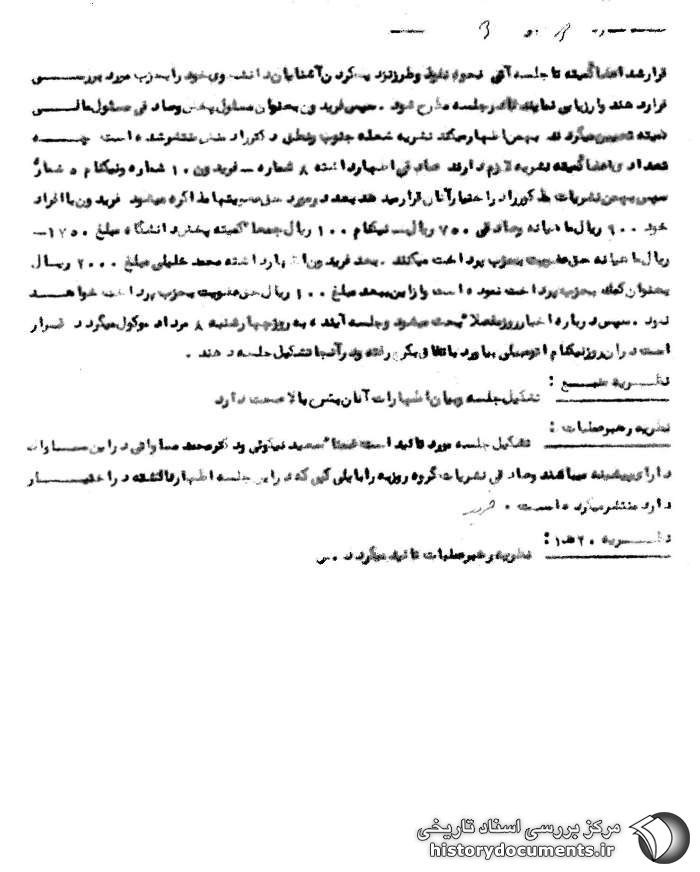 قرار شد اعضا کمیته تا جلسه آتی نحوه نفوذ و طرز نزدیک کردن آشنایان دانشجوی خود را به حزب مورد بررسی
قرار دهند و ارزیابی نمایند تا در جلسه مطرح شود . سپس فریدون بعنوان مسئول پخش و صادقی مسئول مالی
کمیته تعیین میگردند بهمن اظهار میکند نشریه شعله جنوب و نطق دکتر رادمنش منتشر شده است چه
تعدادی اعضا کمیته نشریه لازم دارند صادقی اظهار داشته ۸ شماره ـ فریدون ۱۰ شماره و نیکنام ۵ شماره
سپس بهمن نشریات مذکور را در اختیار آنان قرار میدهد بعد در مورد حق عضویتها مذاکره میشود فریدون با افراد
خود ۹۰۰ ریال ماهیانه و صادقی ۷۵۰ ریال ـ نیکنام ۱۰۰ ریال جمعا" کمیته پخش دانشگاه مبلغ ۱۷۵۰ ـ
ریال ماهیانه حق عضویت بحزب پرداخت میکنند . بعد فریدون اظهار داشته محمد خلیلی مبلغ ۲۰۰۰ ریال
بعنوان کمک بحزب پرداخت نموده است و از این ببعد مبلغ ۱۰۰ ریال حق عضویت بحزب پرداخت خواهد
نمود . سپس درباره اخبار روز مفصلا" بحث میشود و جلسه آینده به روز چهارشنبه ۸ مرداد موکول میگردد قرار
است در آن روز نیکنام اتومبیلی بیاورد با تفاق بکرج رفته و در آنجا تشکیل جلسه دهند .
نظریه منبع :
تشکیل جلسه و بیان اظهارات آنان بشرح بالا صحت دارد
نظریه رهبر عملیات :
تشکیل جلسه مورد تائید است ضمنا" سعید نیکوئی و دکتر محمد مساواتی در این سـاواک
دارای پیشینه میباشند و صادقی نشریات گروه روزبه را با پلی کپی که در این جلسه اظهار داشته در اختیار
دارد منتشر میکرده است .
نظریه ۲۰ هـ ۱ :
نظریه رهبر عملیات تائید میگردد . س
مرکز بررسی اسناد تاریخی
historydocuments.ir